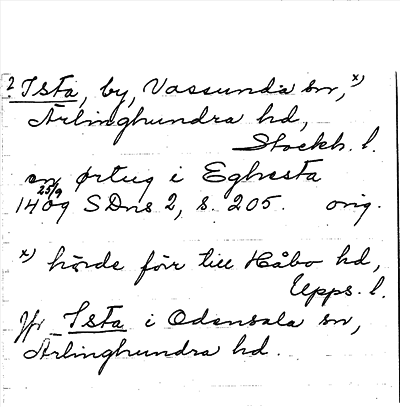 2 Ista, by, Vassunda sn, x)
Ärlinghundra hd,
Stockh. l.
en ørtug i Eghesta
25/9
1409 SDns 2, s. 205. orig.
x) hörde förr till Håbo hd,
Upps. l.
Jfr Ista i Odensala sn,
Ärlinghundra hd.